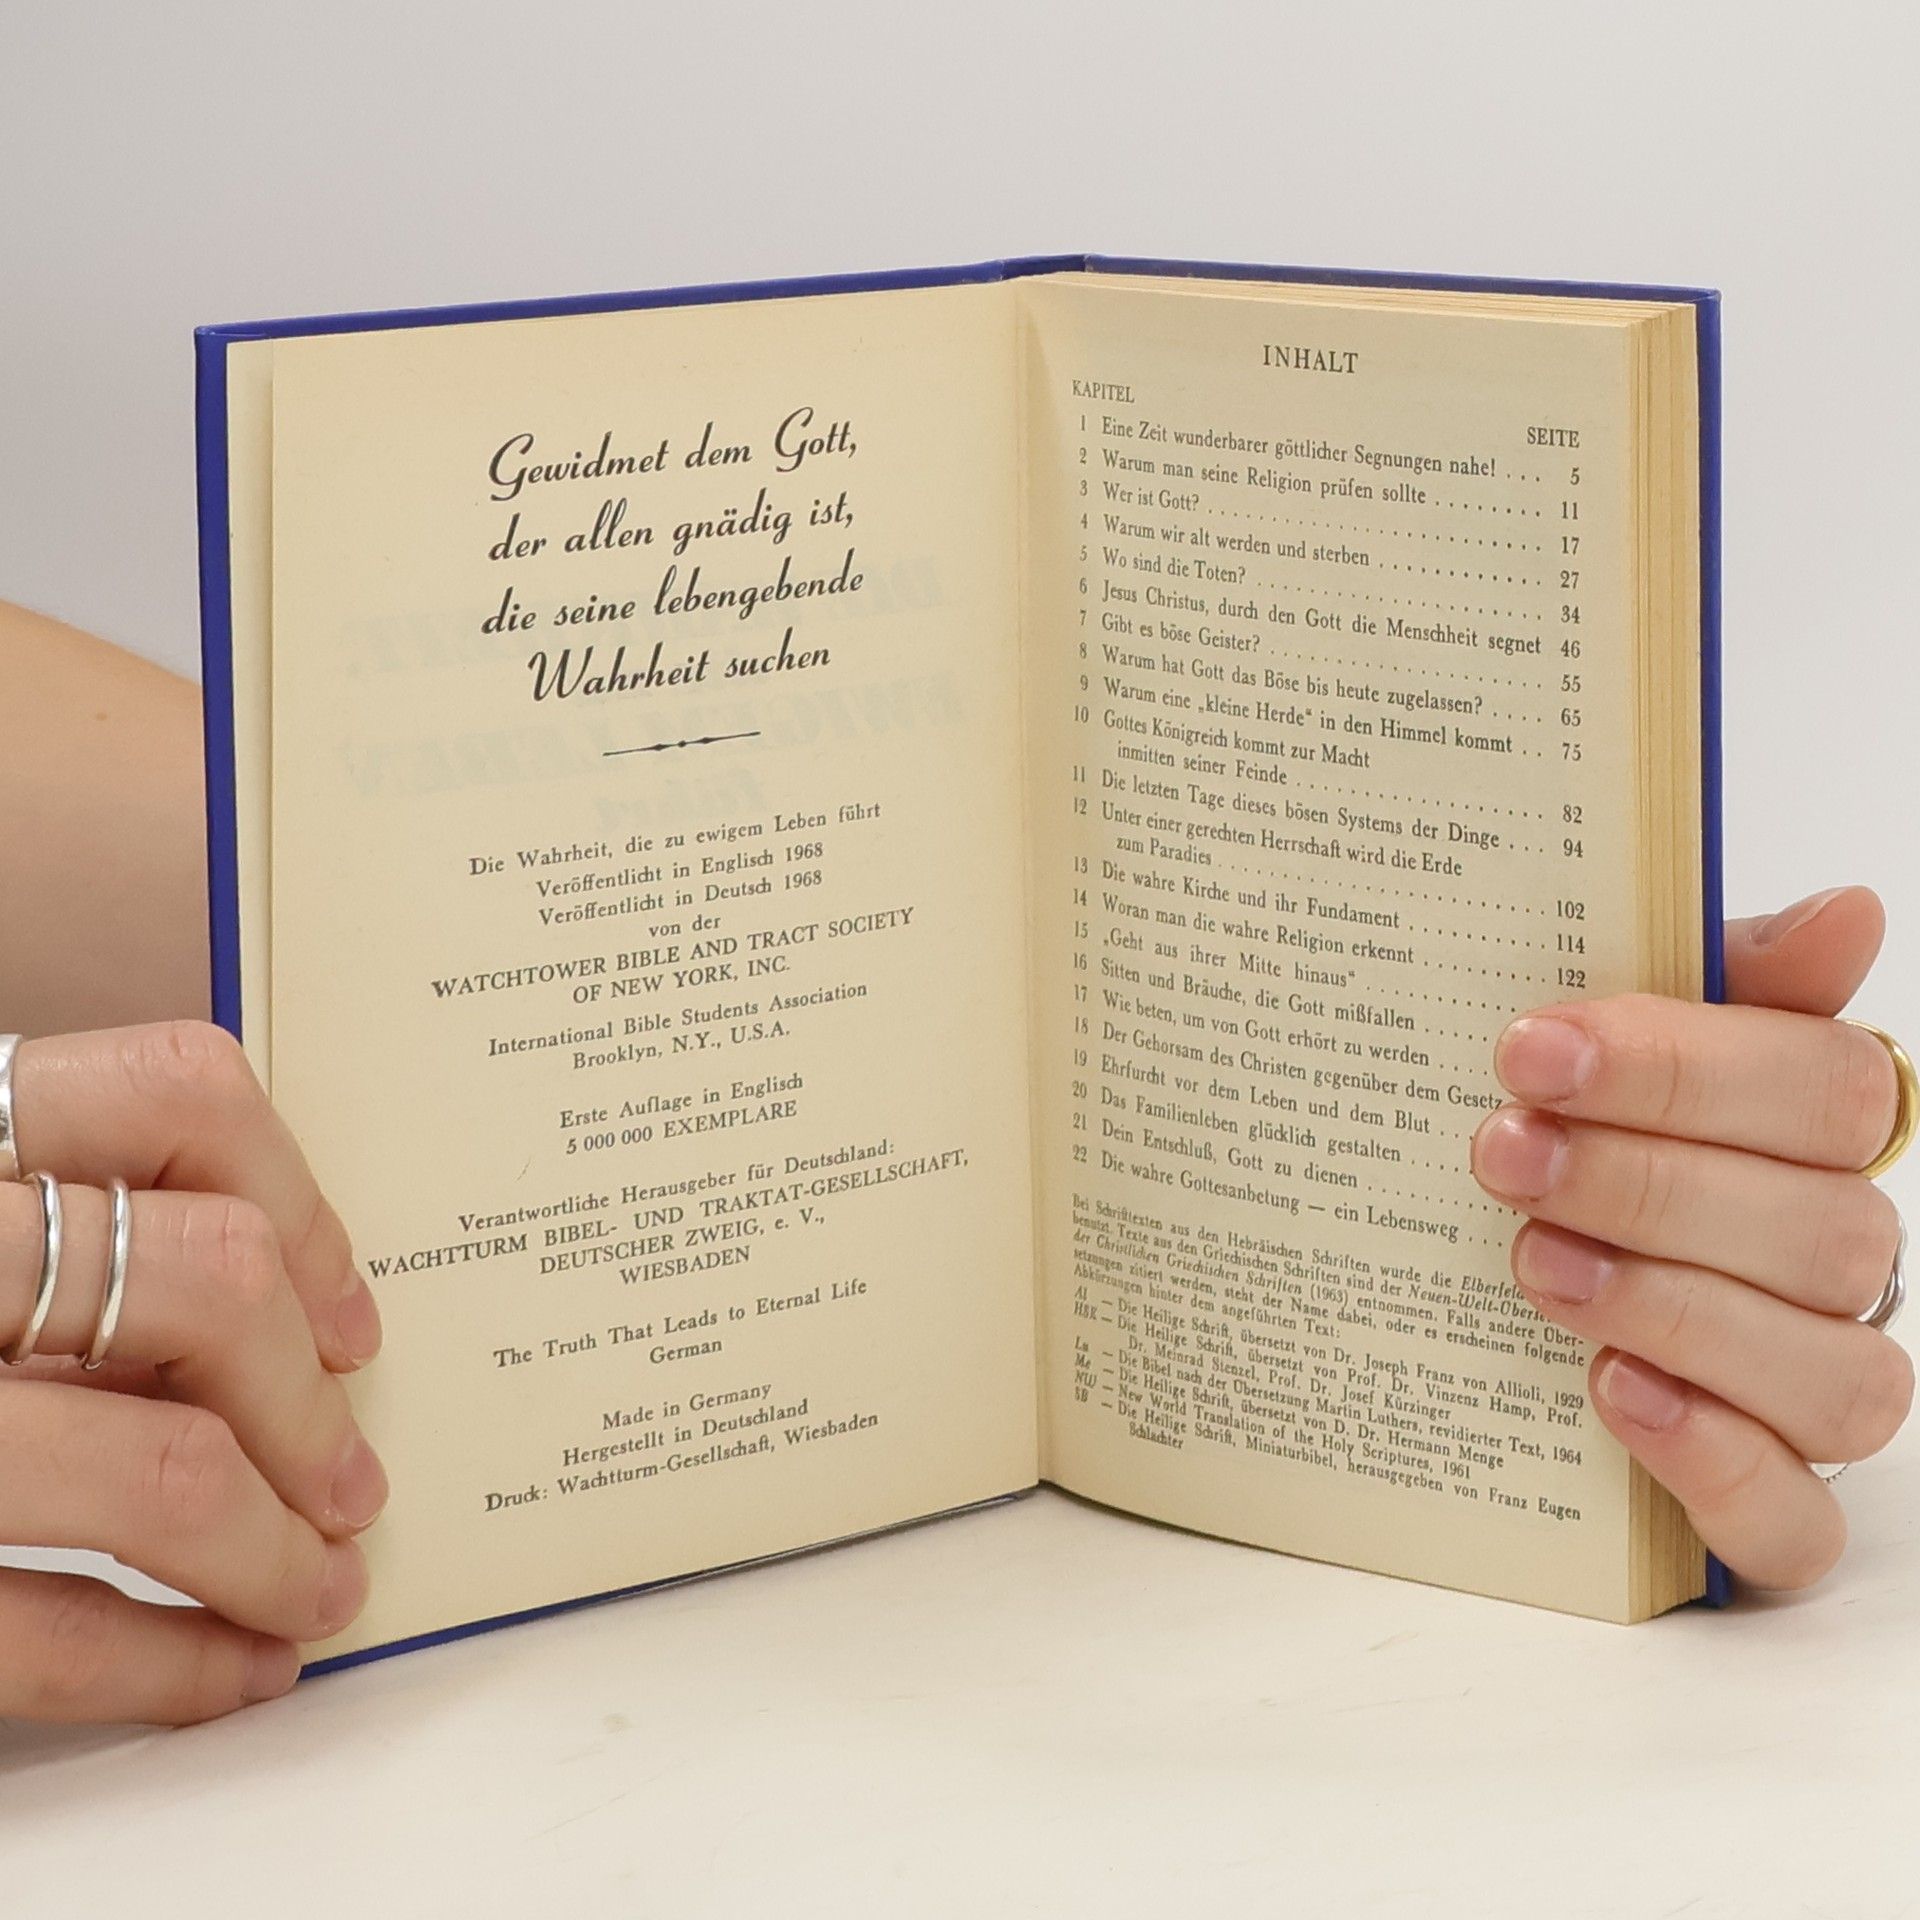 Gewidmet dem Gott,
der allen gnädig ist,
die seine lebengebende
Wahrheit suchen
Die Wahrheit, die zu ewigem Leben führt
Veröffentlicht in Englisch 1968
Veröffentlicht in Deutsch 1968
von der
WATCHTOWER BIBLE AND TRACT SOCIETY
OF NEW YORK, INC.
International Bible Students Association
Brooklyn, N.Y., U.S.A.
Erste Auflage in Englisch
5 000 000 EXEMPLARE
Verantwortliche Herausgeber für Deutschland:
WACHTTURM BIBEL- UND TRAKTAT-GESELLSCHAFT,
DEUTSCHER ZWEIG, e. V.,
WIESBADEN
The Truth That Leads to Eternal Life
German
Made in Germany
Hergestellt in Deutschland
Druck: Wachtturm-Gesellschaft, Wiesbaden
INHALT
KAPITEL SEITE
1 Eine Zeit wunderbarer göttlicher Segnungen nahe! . . . 5
2 Warum man seine Religion prüfen sollte . . . . . . . . 11
3 Wer ist Gott? . . . . . . . . . . . . . . . . . . . . . . . . . . 17
4 Warum wir alt werden und sterben . . . . . . . . . . . . 27
5 Wo sind die Toten? . . . . . . . . . . . . . . . . . . . . . . 34
6 Jesus Christus, durch den Gott die Menschheit segnet 46
7 Gibt es böse Geister? . . . . . . . . . . . . . . . . . . . . . 55
8 Warum hat Gott das Böse bis heute zugelassen? . . . . 65
9 Warum eine „kleine Herde“ in den Himmel kommt . . 75
10 Gottes Königreich kommt zur Macht
inmitten seiner Feinde . . . . . . . . . . . . . . . . . . . 82
11 Die letzten Tage dieses bösen Systems der Dinge . . . 94
12 Unter einer gerechten Herrschaft wird die Erde
zum Paradies . . . . . . . . . . . . . . . . . . . . . . . . . 102
13 Die wahre Kirche und ihr Fundament . . . . . . . . . . 114
14 Woran man die wahre Religion erkennt . . . . . . . . . 122
15 „Geht aus ihrer Mitte hinaus“ . . . . . . . . . . . . .
16 Sitten und Bräuche, die Gott mißfallen . . . . .
17 Wie beten, um von Gott erhört zu werden . . . .
18 Der Gehorsam des Christen gegenüber dem Gesetz
19 Ehrfurcht vor dem Leben und dem Blut . . .
20 Das Familienleben glücklich gestalten . . . . .
21 Dein Entschluß, Gott zu dienen . . . . . . . . . .
22 Die wahre Gottesanbetung — ein Lebensweg . . .
Bei Schrifttexten aus den Hebräischen Schriften wurde die
benutzt. Texte aus den Griechischen Schriften sind der
der Christlichen Griechischen Schriften (1963) entnommen. Falls andere Über-
setzungen zitiert werden, steht der Name dabei, oder es erscheinen folgende
Abkürzungen hinter dem angeführten Text:
Al — Die Heilige Schrift, übersetzt von Dr. Joseph Franz von Allioli, 1929
HSK — Die Heilige Schrift, übersetzt von Prof. Dr. Vinzenz Hamp, Prof.
Dr. Meinrad Stenzel, Prof. Dr. Josef Kürzinger
Lu — Die Bibel nach der Übersetzung Martin Luthers, revidierter Text, 1964
Me — Die Heilige Schrift, übersetzt von D. Dr. Hermann Menge
NW — New World Translation of the Holy Scriptures, 1961
SB — Die Heilige Schrift, Miniaturbibel, herausgegeben von Franz Eugen
Schlachter